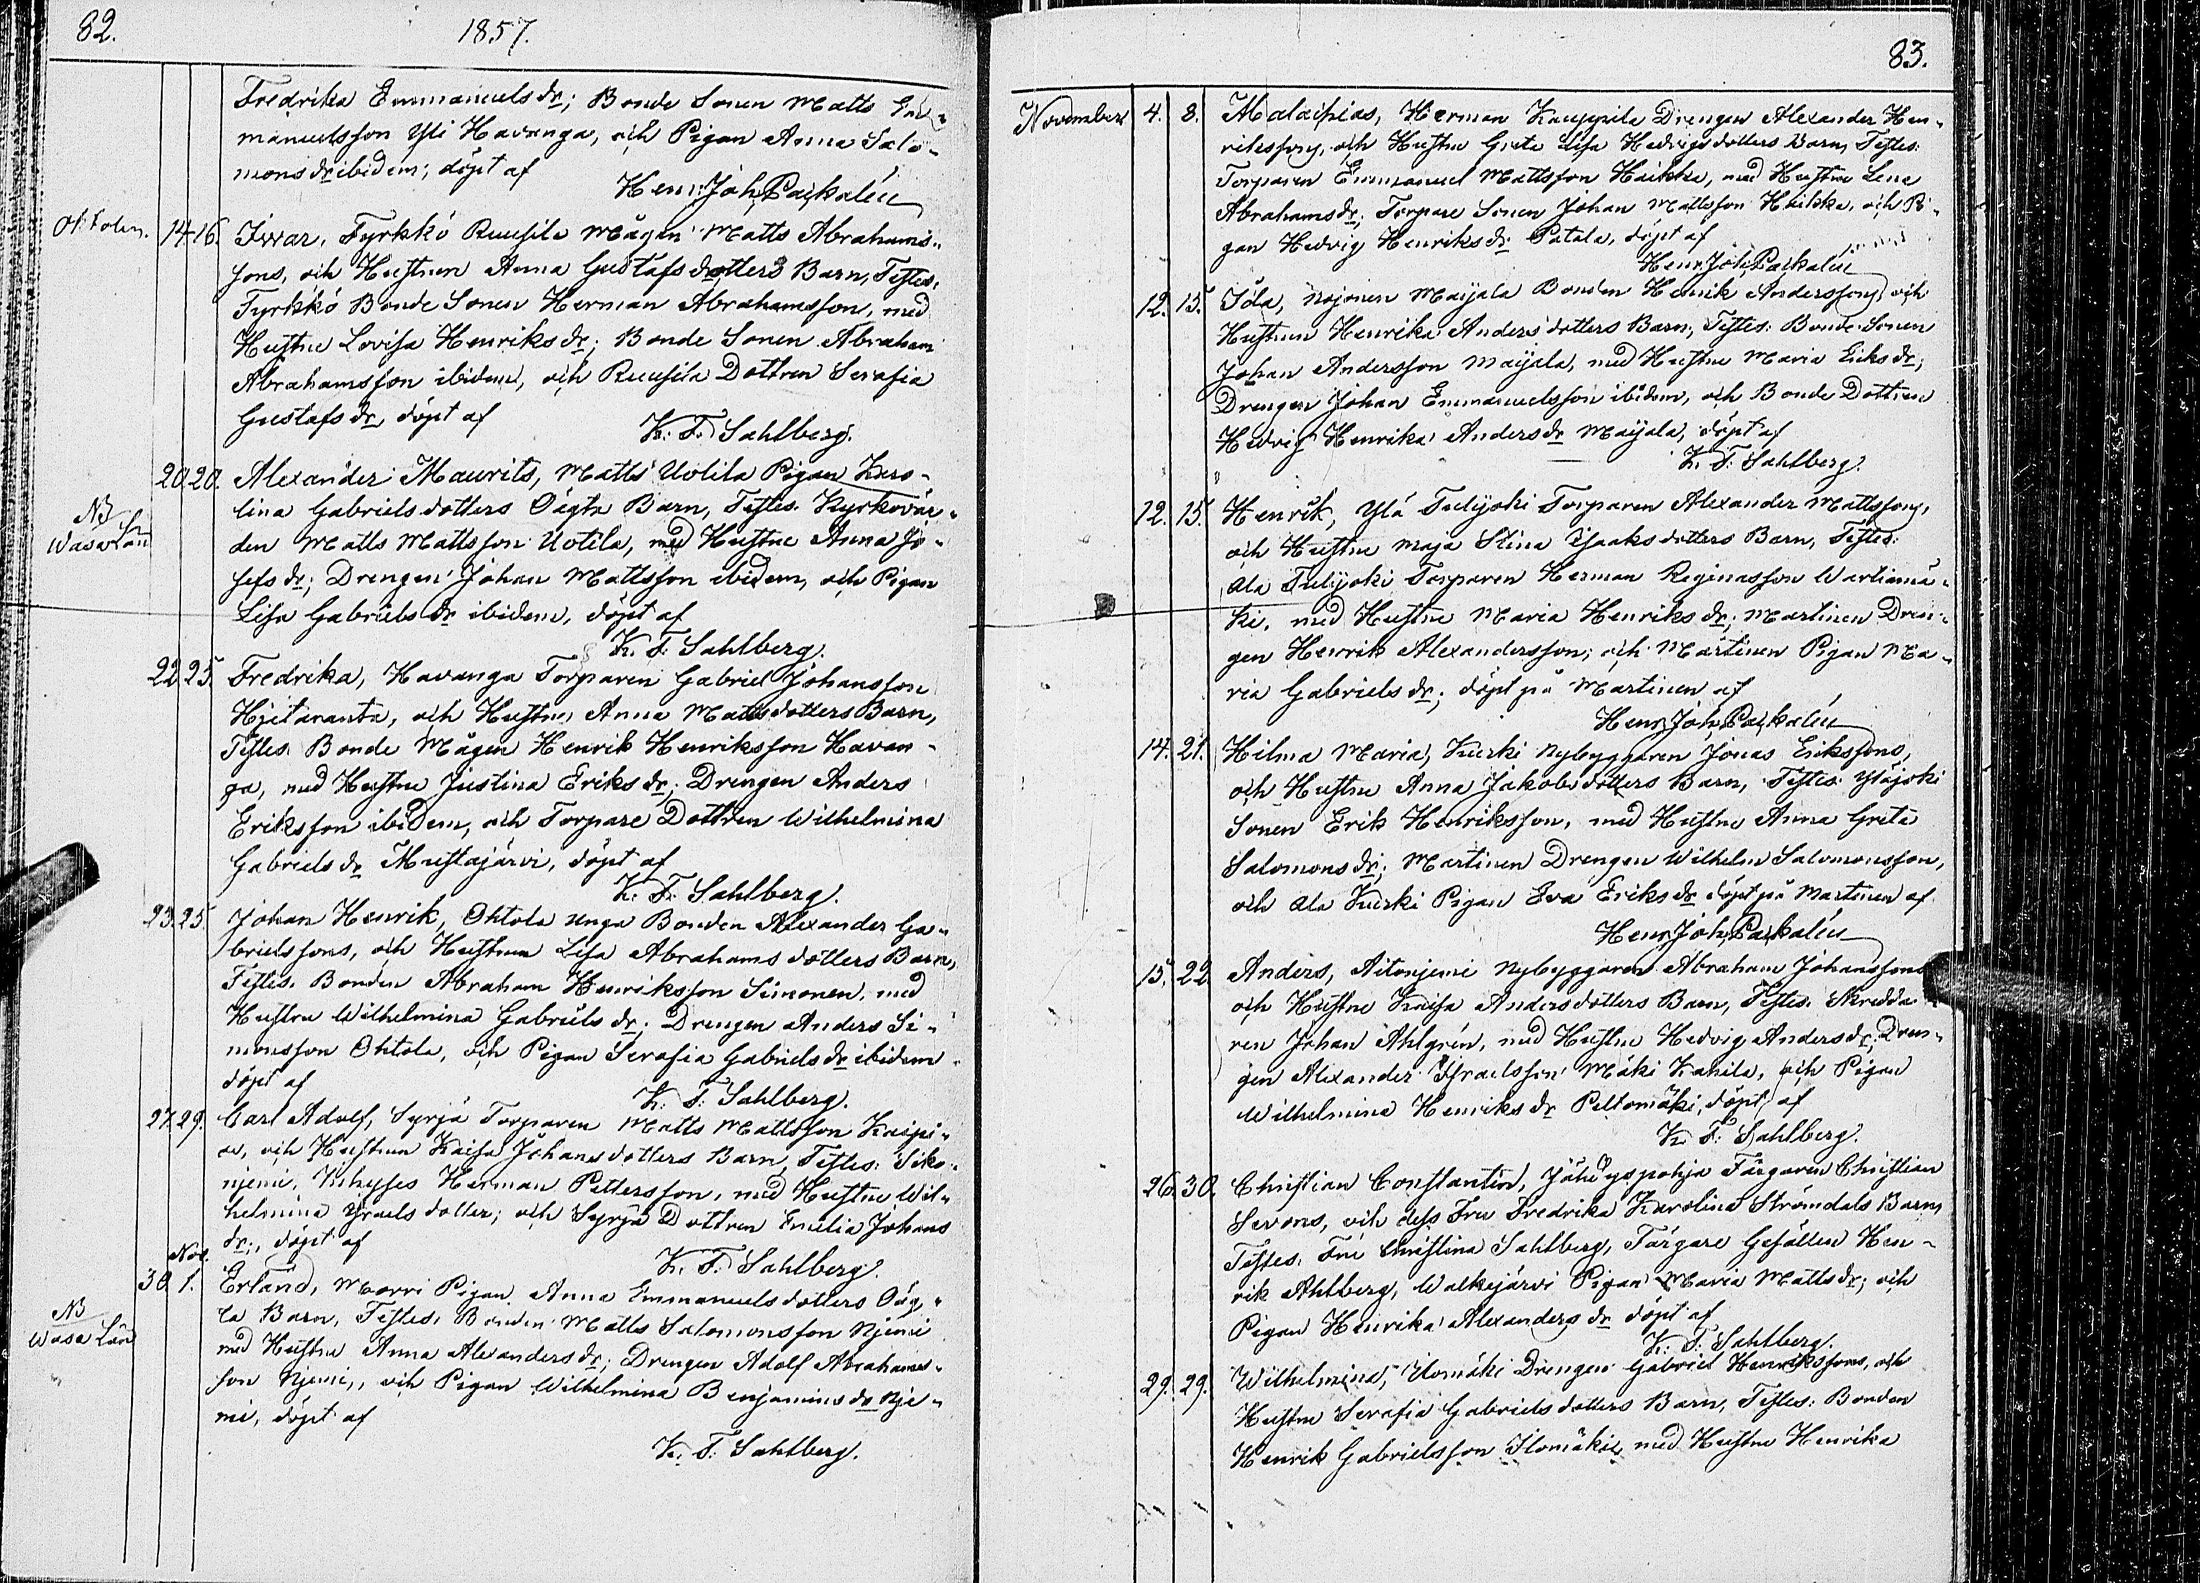 82.
1857.
Fredrika Emmanuels dr; Bonde Sonen Matts Em-
manuelsson Yli Havanga, och Pigan Anna Salo-
mons dr ibidem; döpt af
Henr: Joh: Paskalin
Octobr. 14. 16. Iwar, Tyrkkö Ruusila Mågen Matts Abrahams-
sons, och Hustrun Anna Gustafs dotters Barn, Testes:
Tyrkkö Bonde Sonen Herman Abrahamsson, med
Hustru Lovisa Henriks dr; Bonde Sonen Abraham
Abrahamsson ibidem, och Ruusila Dottren Serafia
Gustafs dr, döpt af
K. F. Sahlberg.
20. 20. Alexander Maurits, Matts Uotila Pigan Karo-
NB lina Gabriels dotters Oägta Barn, Testes: Kyrkovär-
Wasa Län den Matts Mattsson Uotila, med Hustru Anna Jo-
sefs dr; Drengen Johan Mattsson ibidem, och Pigan
Lisa Gabriels dr ibidem, döpt af
K. F. Sahlberg.
22. 25. Fredrika, Havanga Torparen Gabriel Johansson
Hjetaranta, och Hustru Anna Matts dotters Barn,
Testes: Bonde Mågen Henrik Henriksson Havan-
ga, med Hustru Justina Eriks dr; Drengen Anders
Eriksson ibidem, och Torpare Dottren Wilhelmina
Gabriels dr Mustajärvi, döpt af
K. F. Sahlberg.
23. 25. Johan Henrik, Ohtola unga Bonden Alexander Ga-
brielssons, och Hustrun Lisa Abrahams dotters Barn,
Testes: Bonden Abraham Henriksson Simonen, med
Hustru Wilhelmina Gabriels dr; Drengen Anders Si-
monsson Ohtola, och Pigan Serafia Gabriels dr ibidem
döpt af
K. F. Sahlberg.
27. 29. Carl Adolf, Syrjä Torparen Matts Mattsson
och Hustrun Kaisa Johans dotters Barn, Testes: Siko-
njemi, Herman Pettersson, med Hustru Wil-
helmina Israels dotter; och Syrjä Dottren Emelia Johans
dr;, döpt af
K. F. Sahlberg.
Nov.
30. 1. Erland, Morri Pigan Anna Emmanuels dotters Oäg-
NB ta Barn, Testes: Bonden Matts Salomonsson Njemi
Wasa Län med Hustru Anna Alexanders dr; Drengen Adolf Abrahams-
son Njemi, och Pigan Wilhelmina Benjamins dr Nje-
mi, döpt af
K. F. Sahlberg.
83.
November 4. 8. Malachias, Herman Kauppila Drengen Alexander Hen-
rikssons, och Hustru Greta Lisa Hedvigs dotters Barn, Testes:
Torparen Emmanuel Mattsson Haikka, med Hustru Lena
Abrahams dr; Torpare Sonen Johan Mattsson Haikka, och Pi-
gan Hedvig Henriks dr Patala, döpt af
Henr: Joh: Paskalin
12. 15. Ida, Nojonen Maijala Bonden Henrik Anderssons, och
Hustrun Henrika Anders dotters Barn, Testes: Bonde Sonen
Johan Andersson Maijala, med Hustru Maria Eriks dr;
Drengen Johan Emmanuelsson ibidem, och Bonde Dottren
Hedvig Henrika Anders dr Maijala, döpt af
K. F. Sahlberg.
12. 15. Henrik, Ylä Tulijoki Torparen Alexander Mattssons,
och Hustru Maja Stina Isaaks dotters Barn, Testes:
Ala Tulijoki Torparen Herman Reginasson Wartiamä-
ki, med Hustru Maria Henriks dr; Martinen Dren-
gen Henrik Alexandersson; och Martinen Pigan Ma-
ria Gabriels dr; döpt på Martinen af
Henr: Joh: Paskalin
14. 21. Hilma Maria, Kurki Nybyggaren Jonas Erikssons,
och Hustru Anna Jakobs dotters Barn, Testes: Yläjoki
Sonen Erik Henriksson, med Hustru Anna Greta
Salomons dr; Martinen Drengen Wilhelm Salomonsson,
och Ala Kurki Pigan Eva Eriks dr döpt på Martinen af
Henr: Joh: Paskalin
15. 22. Anders, Aitonjemi Nybyggaren Abraham Johanssons
och Hustru Kaisa Anders dotters Barn, Testes: Skredda-
ren Johan Ahlgrén, med Hustru Hedvig Anders dr; Dren-
gen Alexander Israelsson Mäki Kakila, och Pigan
Wilhelmina Henriks dr Peltomäki, döpt af
K. F. Sahlberg.
26. 30. Christian Constantin, Jäkiyspohja Färgaren Christian
Sevons, och dess Fru Fredrika Karolina Strömdals Barn,
Testes: Fru Christina Sahlberg, Färgare Gesällen Hen-
rik Ahlberg, Walkejärvi Pigan Maria Matts dr; och
Pigan Henrika Alexanders dr döpt af
K. F. Sahlberg.
29. 29. Wilhelmina, Ilomäki Drengen Gabriel Henrikssons, och
Hustru Serafia Gabriels dotters Barn, Testes: Bonden
Henrik Gabrielsson Ilomäki, med Hustru Henrika